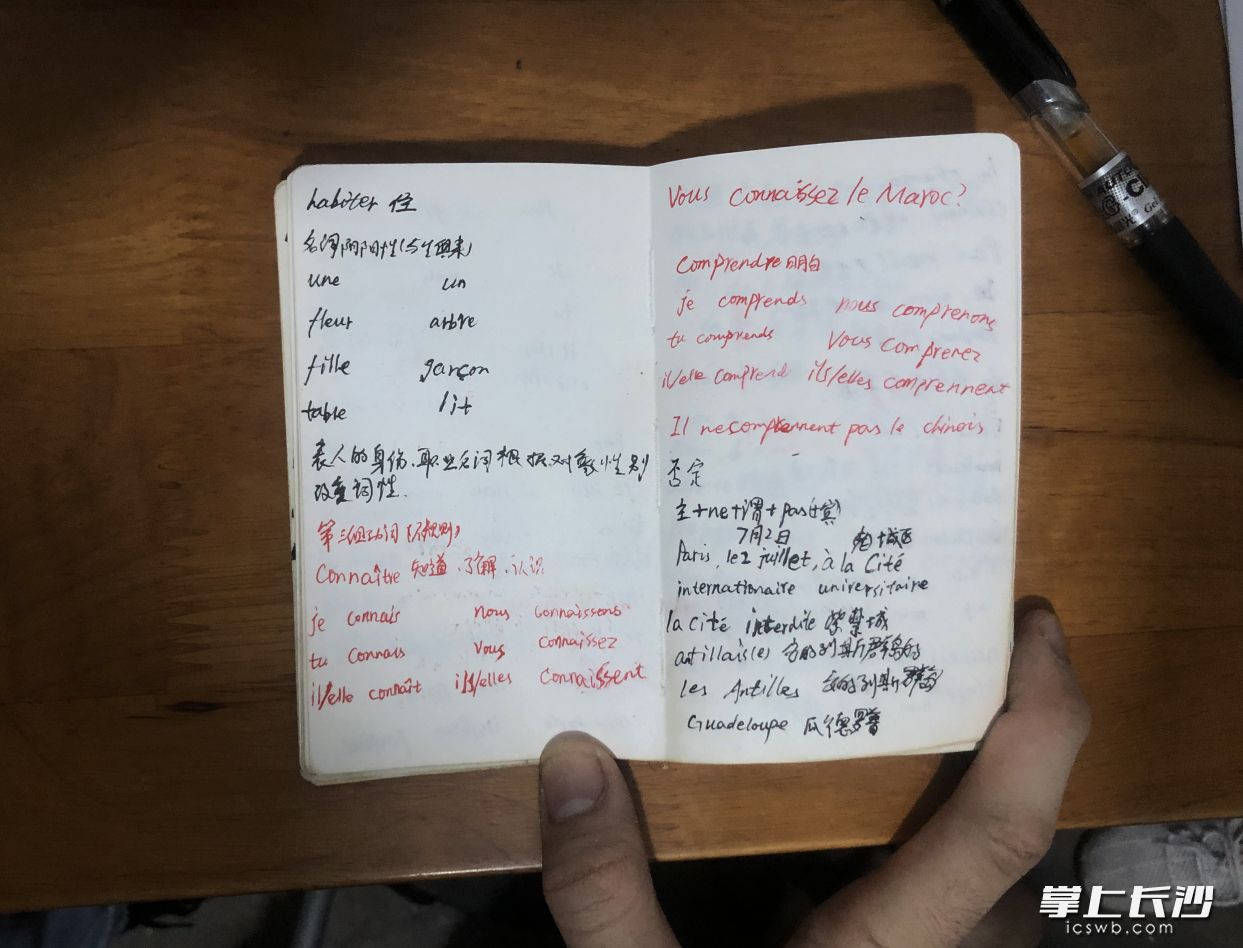 habiter 住
名词阴阳性(与生俱来)
une un
fleur arbre
fille garçon
table lit
表人的身份、职业名词根据对象性别
改变词性.
第三组动词(不规则)
Connaître 知道、了解、认识
je connais nous connaissons
tu connais vous connaissez
il/elle connaît ils/elles connaissent
Vous connaissez le Maroc?
comprendre 明白
je comprends nous comprenons
tu comprends Vous comprenez
il/elle comprend ils/elles comprennent
Il ne comprennent pas le chinois
否定
主+ne+谓+pas(+宾)
7月2日 城区
Paris, le 2 juillet, à la Cité
internationaire universitaire
la Cité interdite 紫禁城
antillais(e) 安的列斯群岛的
les Antilles 安的列斯群岛
Guadeloupe 瓜德罗普
掌上长沙
icswb.com